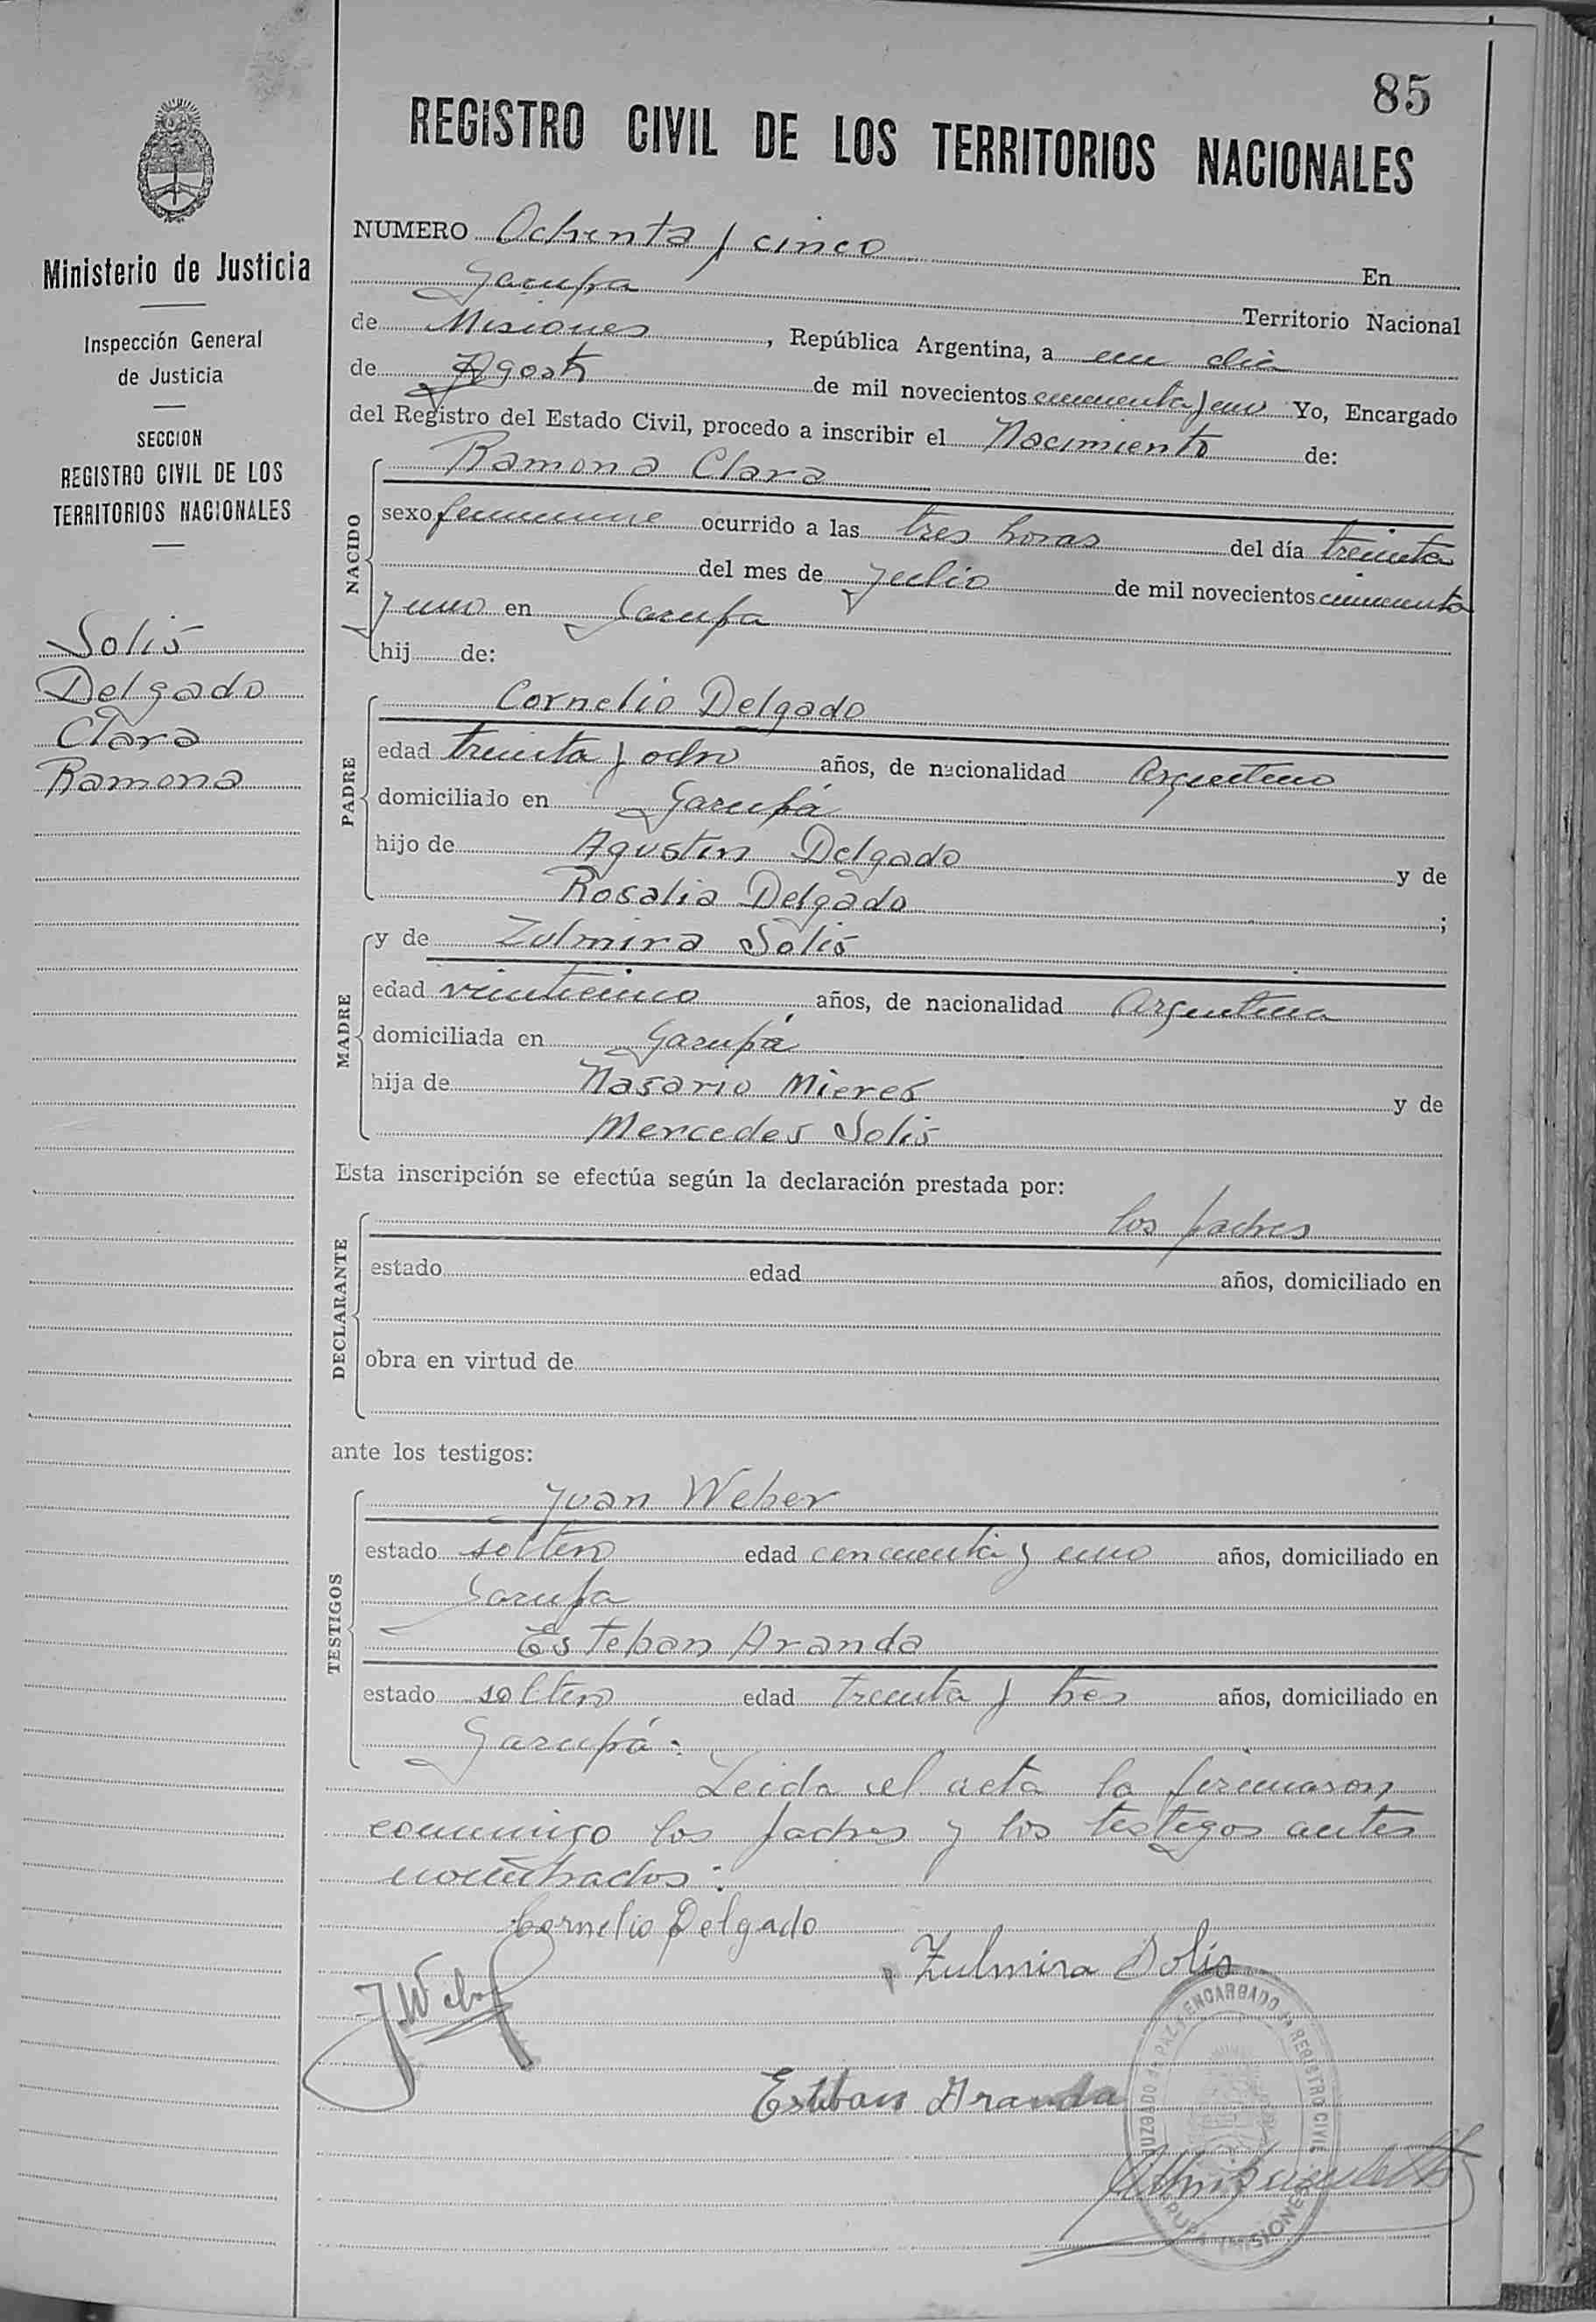 85
REGISTRO CIVIL DE LOS TERRITORIOS NACIONALES
Ministerio de Justicia
Inspección General
de Justicia
SECCION
REGISTRO CIVIL DE LOS
TERRITORIOS NACIONALES
Solis
Delgado
Clara
Ramona
NUMERO Ochenta y cinco En
Garupa Territorio Nacional
de Misiones, República Argentina, a un dia
de Agosto de mil novecientos cincuenta y uno Yo, Encargado
del Registro del Estado Civil, procedo a inscribir el Nacimiento de:
NACIDO
Ramona Clara
sexo femenino ocurrido a las tres horas del día treinta
del mes de Julio de mil novecientos cincuenta
y uno en Garupa
hij de:
PADRE
Cornelio Delgado
edad treinta y ocho años, de nacionalidad Argentino
domiciliado en Garupá
hijo de Agustin Delgado y de
Rosalia Delgado ;
MADRE
y de Zulmira Solis
edad veinticinco años, de nacionalidad Argentina
domiciliada en Garupá
hija de Nasario Mieres y de
Mercedes Solis
Esta inscripción se efectúa según la declaración prestada por:
DECLARANTE
los padres
estado edad años, domiciliado en
obra en virtud de
ante los testigos:
TESTIGOS
Juan Weber
estado soltero edad cincuenta y uno años, domiciliado en
Garupa
Esteban Aranda
estado soltero edad treinta y tres años, domiciliado en
Garupá.
Leida el acta la firmaron
conmigo los padres y los testigos antes
nombrados:
Cornelio Delgado
Zulmira Solis
J. Weber
Esteban Aranda
JUZGADO DE PAZ Y ENCARGADO DE REGISTRO CIVIL
GARUPA MISIONES